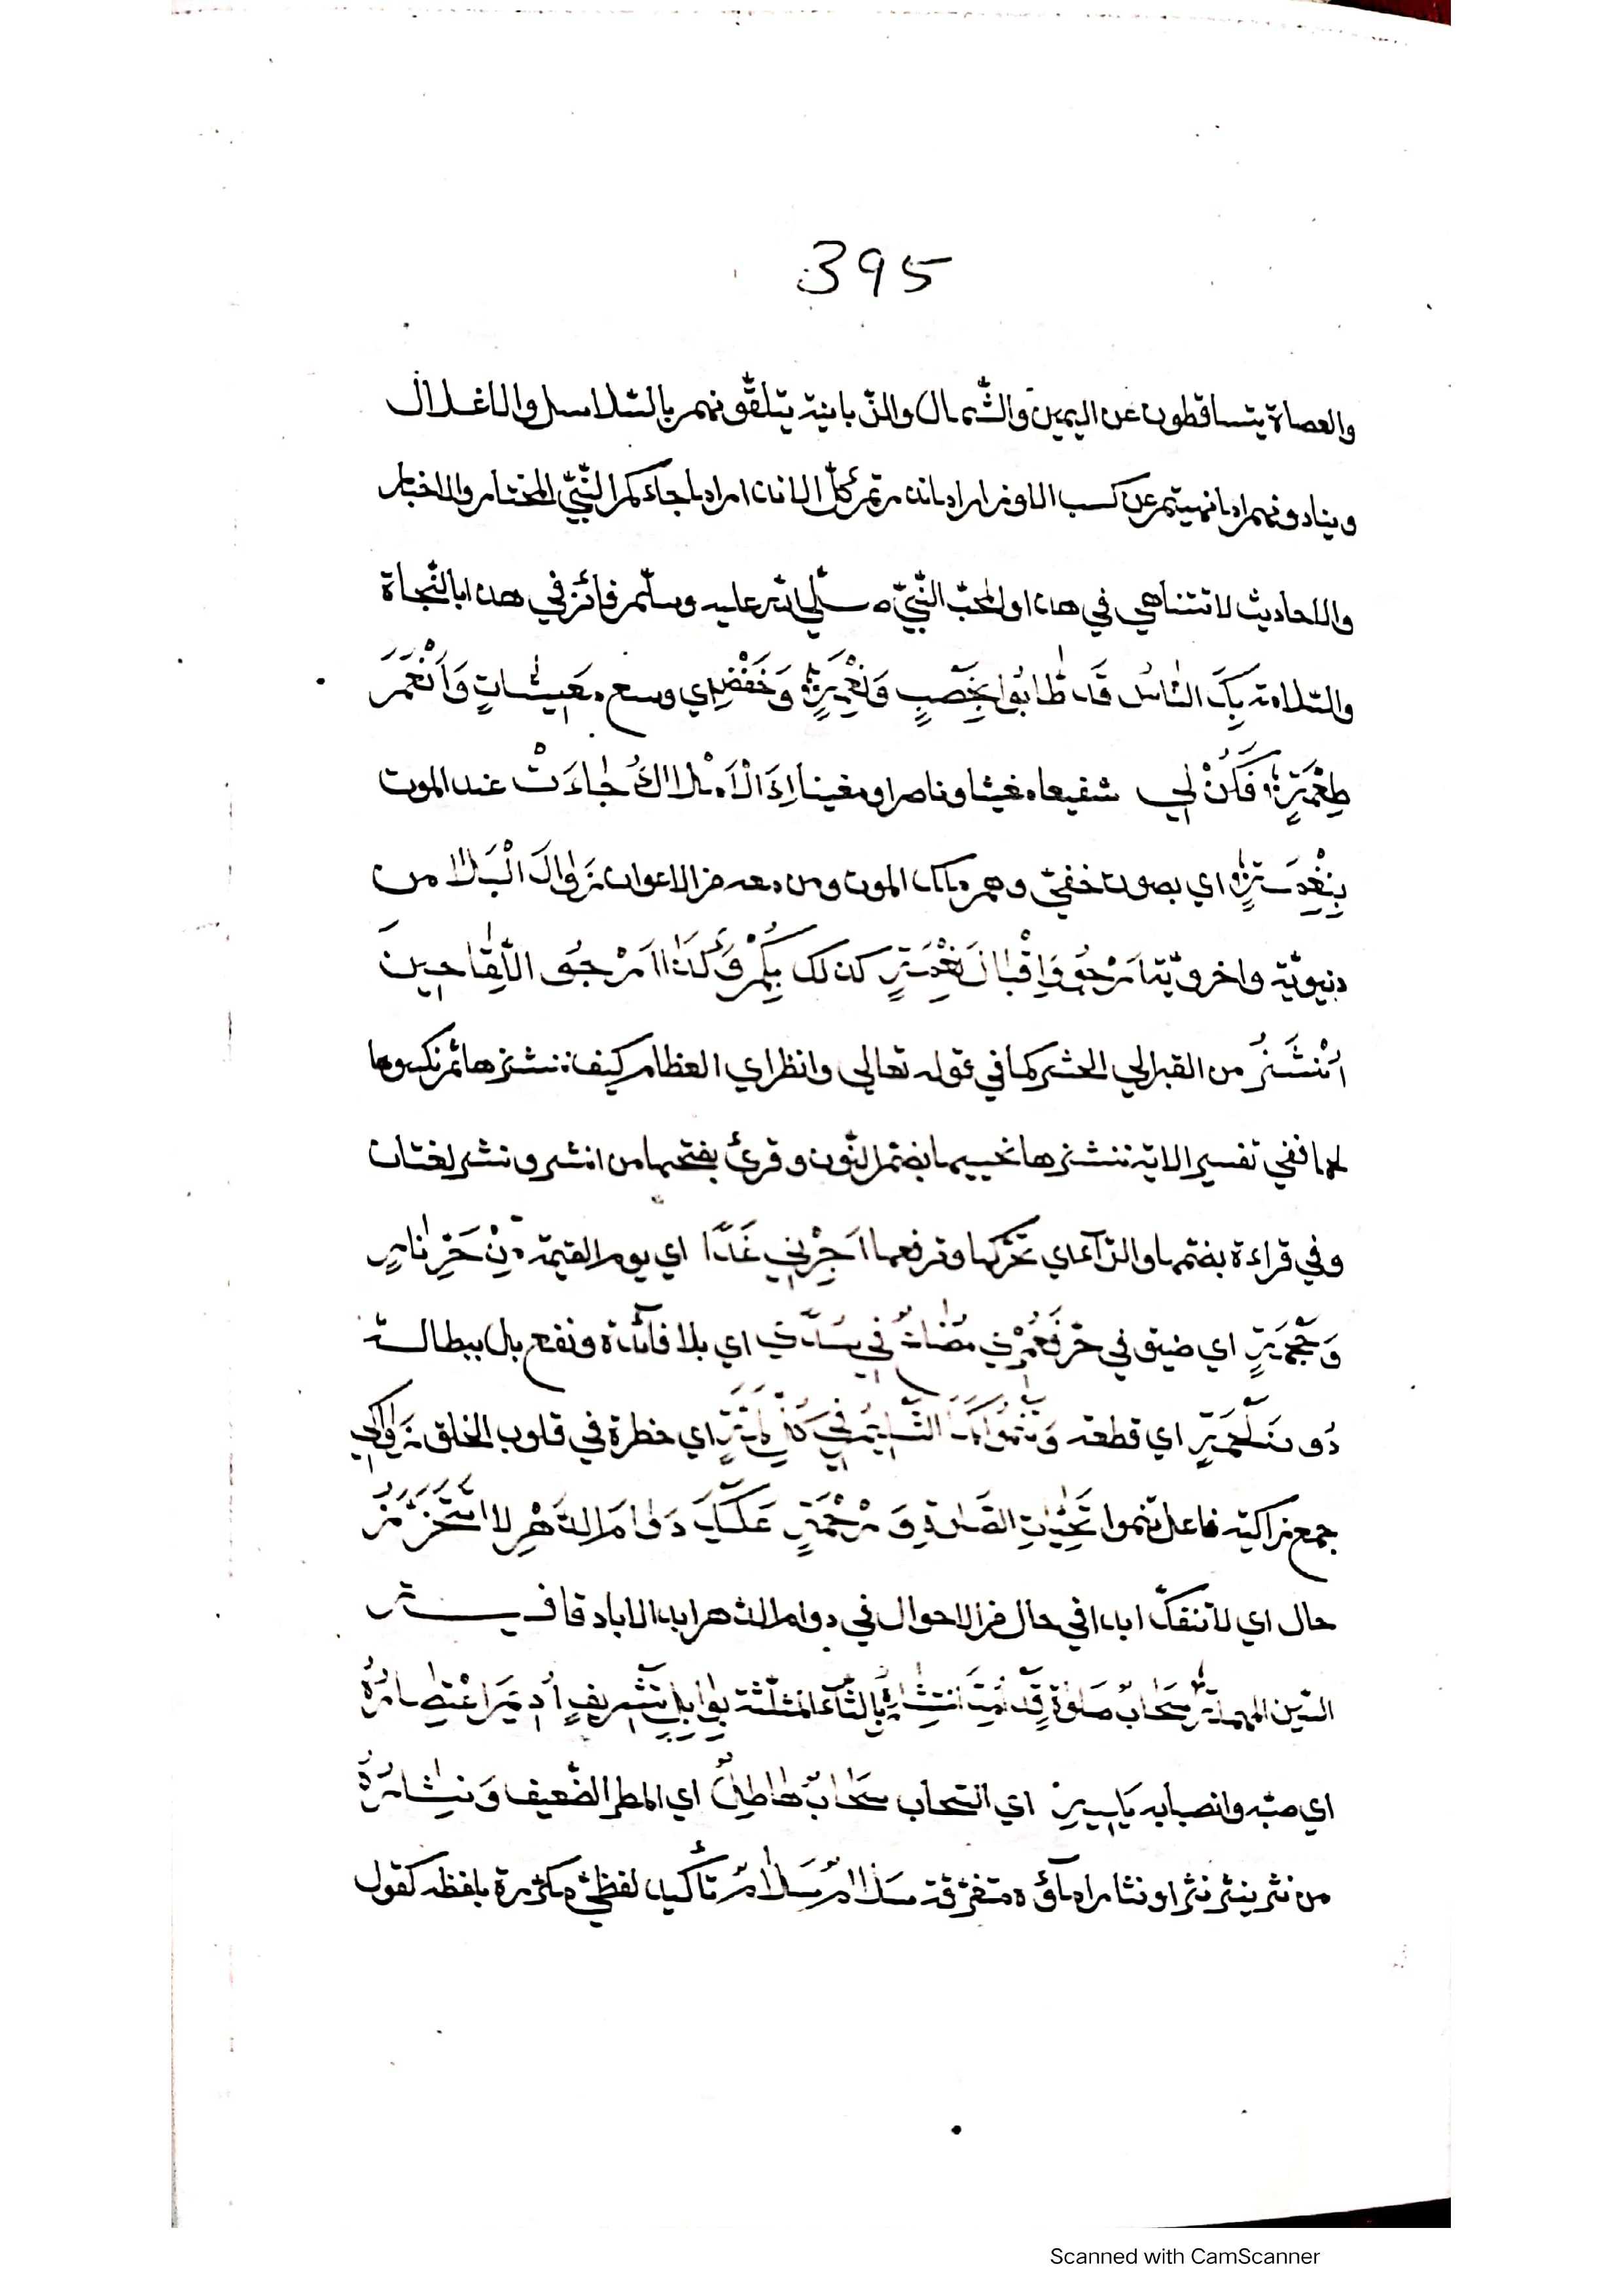 395
والعصاة يتساقطون عن اليمين والشّمال والزّبانية يتلقّونهم بالسّلاسل والاغلال
وينادونهم اما نهيتم عن كسب الاوزار اما انذرتم كلّ الانذار اما جاءكم النّبيّ المختار والاخبار
والاحاديث لا تتناهي في هذا ولمحبّ النّبيّ صلّي الله عليه وسلّم فائز في هذا بالنّجاة
والسّلامة بِكَ النّاسُ قَد طَابُوا بِخِصْبٍ وَنِعْمَةٍ وَخَفْضِ اي وسع معِيشَاتٍ وَاَنْعَمَ
طِعْمَةٍ فَكُنْ لِي شفيعا مغيثا وناصرا ومعينا اِذَا الْاَمْلَاكُ جَاءَتْ عند الموت
بِنَغْمَةٍ اي بصوت خفيّ وهم ملك الموت ومن معه من الاعوان زَوَالَ الْبَلَا من
دنيويّة واخرويّة اَرْجُو وَاِقْبَالَ نِعْمَةٍ كذلك بِكُمْ وَكَذَا اَرْجُو اللِّقَا حِينَ
اُنْشَزُ من القبر الي الحشر كما في قوله تعالي وانظر اي العظام كيف ننشزها ثم نكسوها
لحما ففي تفسير الاية ننشزها نحييها بضمّ النّون وقرئ بفتحها من انشر ونشر لغتان
وفي قراءة بضمّها والزّاء اي نحرّكها ونرفعها اَجِرْنِي غَدًا اي يوم القيمة مِنْ حَرِّ نَارٍ
اي ضيق في حرّ فَعُمْرِي مُضَاعٌ فِي سُدًي اي بلا فائدة ونفع بل ببطالة
دُونَ اي قطعة اي خطرة في قلوب الخلق زَوَاكِي
جمع زاكية فاعل تنموا تَحِيَّاتِ الصَّلَاةِ وَرَحْمَةٍ عَلَيْكَ دَوَامَ الدَّهْرِ لَا تَتَزَحْزَحُ
حال اي لا تنفكّ ابدا في حال من الاحوال في دوام الدّهر ابد الاباد قافية
السّين المهملة سَحَابُ صَلَوةٍ قَد بالثّاء المثلّثة بِوَابِلِ تَشْرِيفٍ اُدِيمَ
اي صبّه وانصبابه اي السّحاب سَحَابٌ هَاطِلٌ اي المطر الضّعيف وَنِثَارُهُ
من نثر ينثر نثرا ونثارا ماؤه متفرّقة سَلَامٌ سَلَامٌ تأكيد لفظيّ مكرّرة بلفظه كقول
Scanned with CamScanner